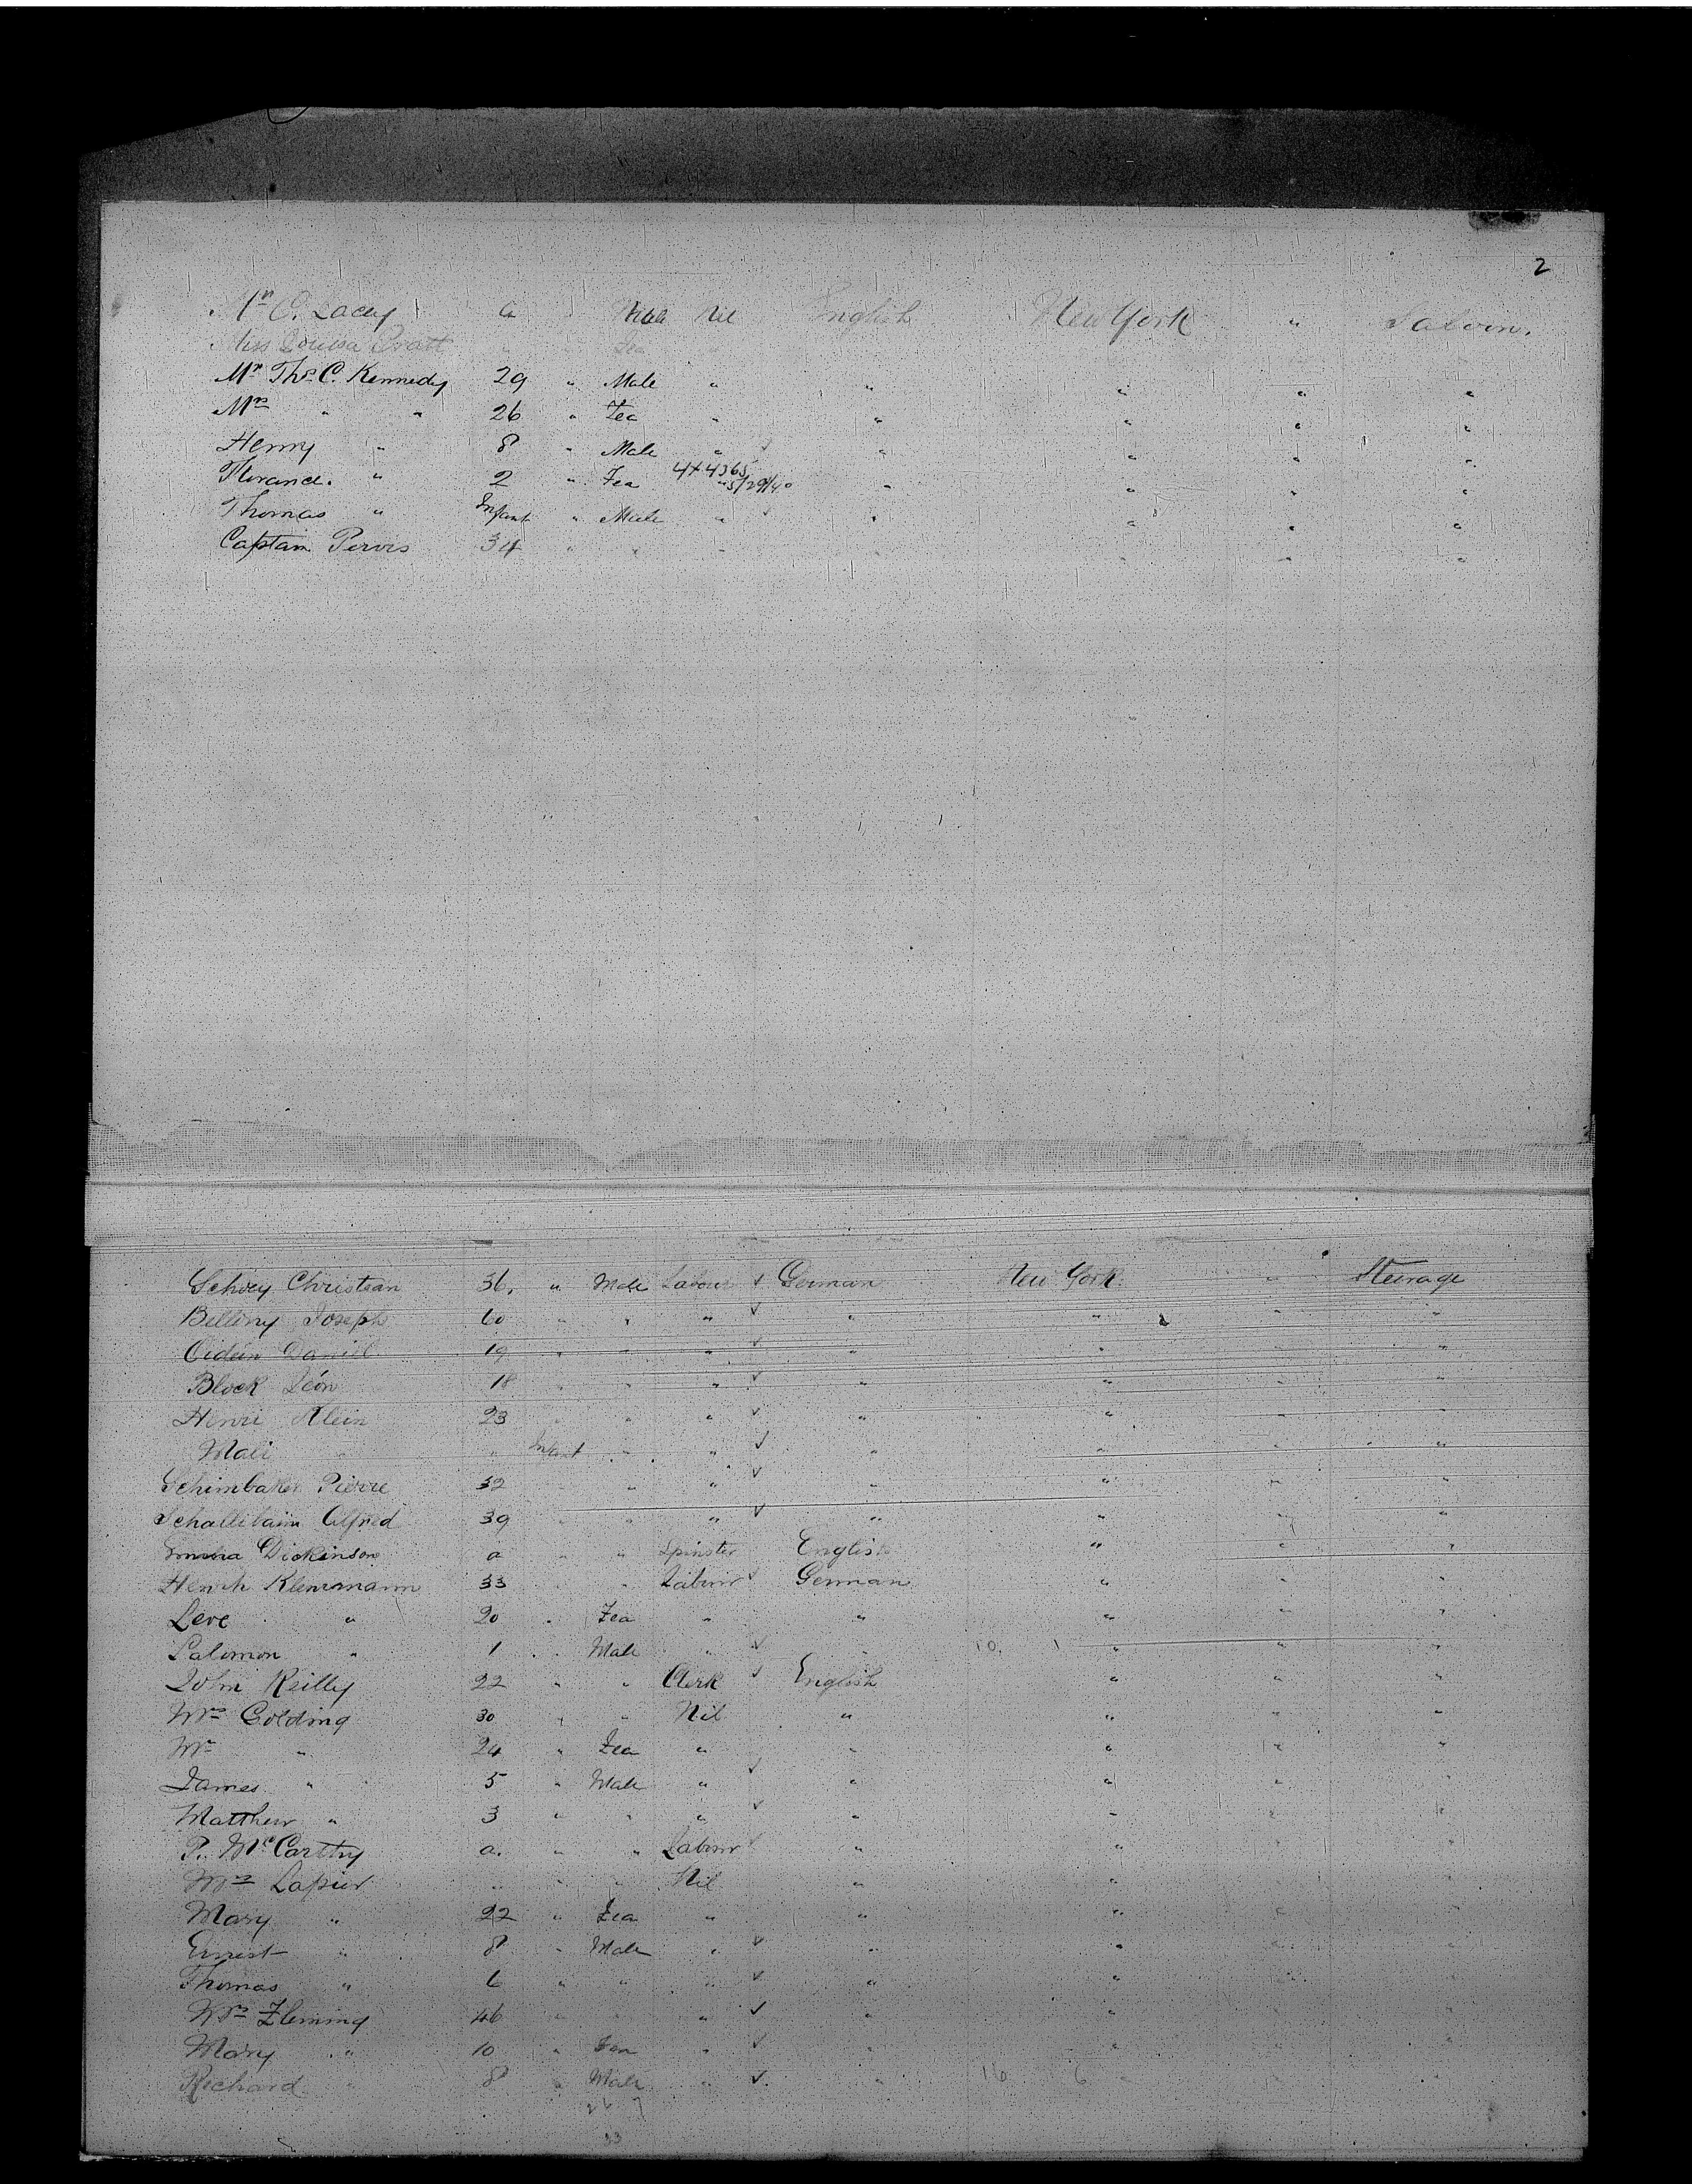 2
Mr O. Lacey a " Male Nil English New York " Saloon.
Miss Louisa Pratt " " Fea
Mr Thos. C. Kennedy 29 " Male " " " " "
Mrs " " 26 " Fea " " " " "
Henry " 8 " Male " " " " "
4x4365
Florance. " 2 " Fea " 5/29/40 " " " "
Thomas " Infant " Male " " " " "
Captain Pervis 34 " " " " " " "
Christian 36. " Male Labour ✓ German New York " Steerage
Joseph 60 " " " ✓ " " " "
Daniel 19 " " " ✓ " " " "
Block Léon 18 " " " ✓ " " " "
Henri Klein 23 " " " ✓ " " " "
" " Infant " " ✓ " " " "
Pierre 32 " " ✓ " " " "
Alfred 39 " " " ✓ " " " "
Dickinson a " " Spinster English " " "
33 " " Labour ✓ German " " "
Leve " 20 " Fea " " " " "
Salomon " 1 " Male " ✓ 10. 1 " " "
John Reilly 22 " " Clerk ✓ English " " "
Wm Golding 30 " " Nil " " " "
" 24 " Fea " " " " "
James " 5 " Male " ✓ " " " "
Matthew " 3 " " " ✓ " " " "
P. McCarthy a. " " Labour ✓ " " " "
Lapier " " " Nil " " " "
Mary " 22 " Fea " " " " "
Ernest " 8 " Male " ✓ " " " "
Thomas " 6 " " " ✓ " " " "
Wm Fleming 46 " " " ✓ " " " "
Mary " 10 " Fea " ✓ " " " "
Richard " 8 " Male " ✓ " 16 6 " " "
26 7
33